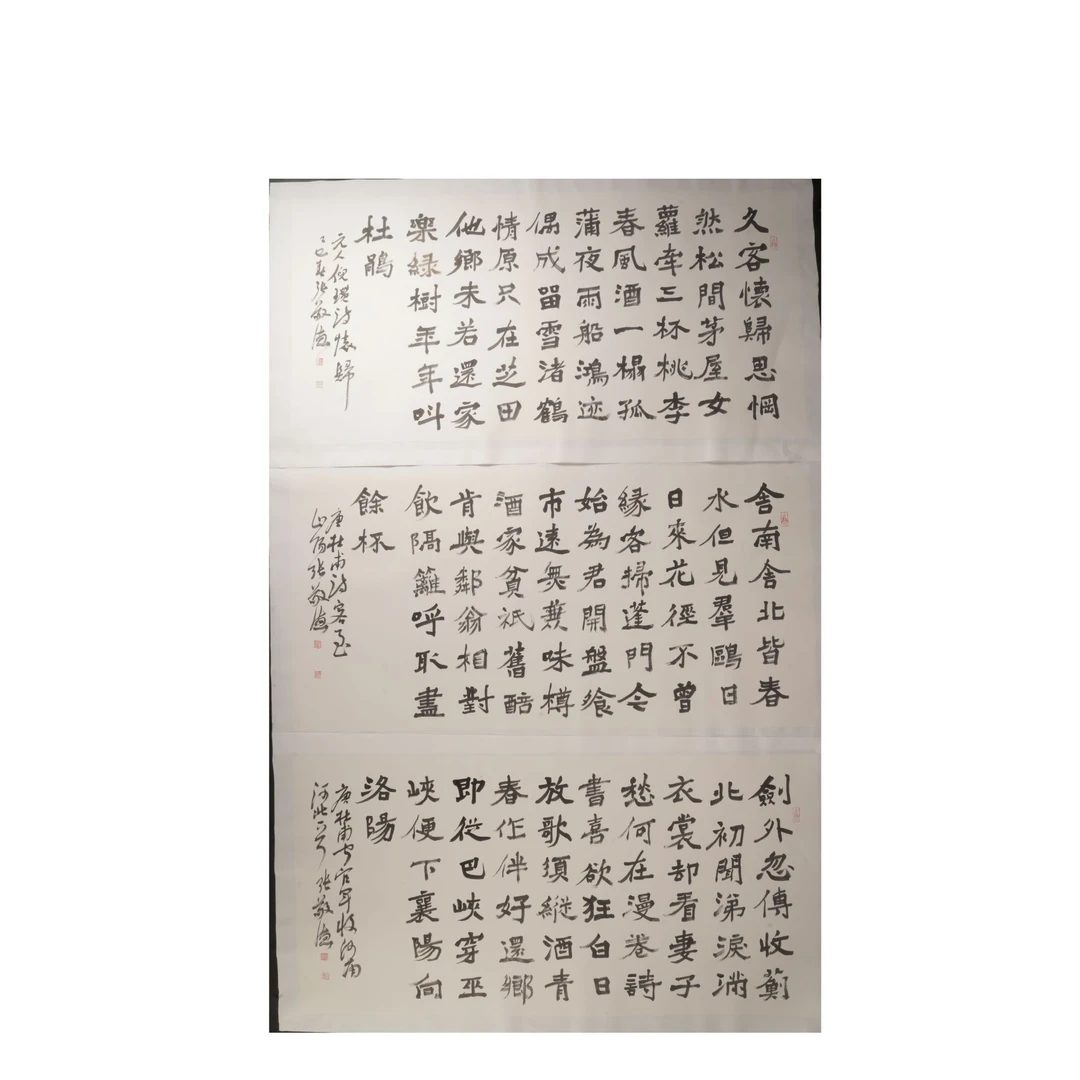 久客懷歸思惘
然松間茅屋女
蘿牽三杯桃李
春風酒一榻孤
蒲夜雨船鴻迹
偶成留雪渚鶴
情原只在芝田
他鄉未若還家
樂綠樹年年叫
杜鵑
元人倪瓚詩懷歸
張敬
舍南舍北皆春
水但見羣鷗日
日來花徑不曾
緣客掃蓬門今
始為君開盤飧
市遠無兼味樽
酒家貧祇舊醅
肯與鄰翁相對
飲隔籬呼取盡
餘杯
唐杜甫詩客至
張敬
劍外忽傳收薊
北初聞涕淚滿
衣裳却看妻子
愁何在漫卷詩
書喜欲狂白日
放歌須縱酒青
春作伴好還鄉
即從巴峽穿巫
峽便下襄陽向
洛陽
唐杜甫官軍收河南
河北 張敬